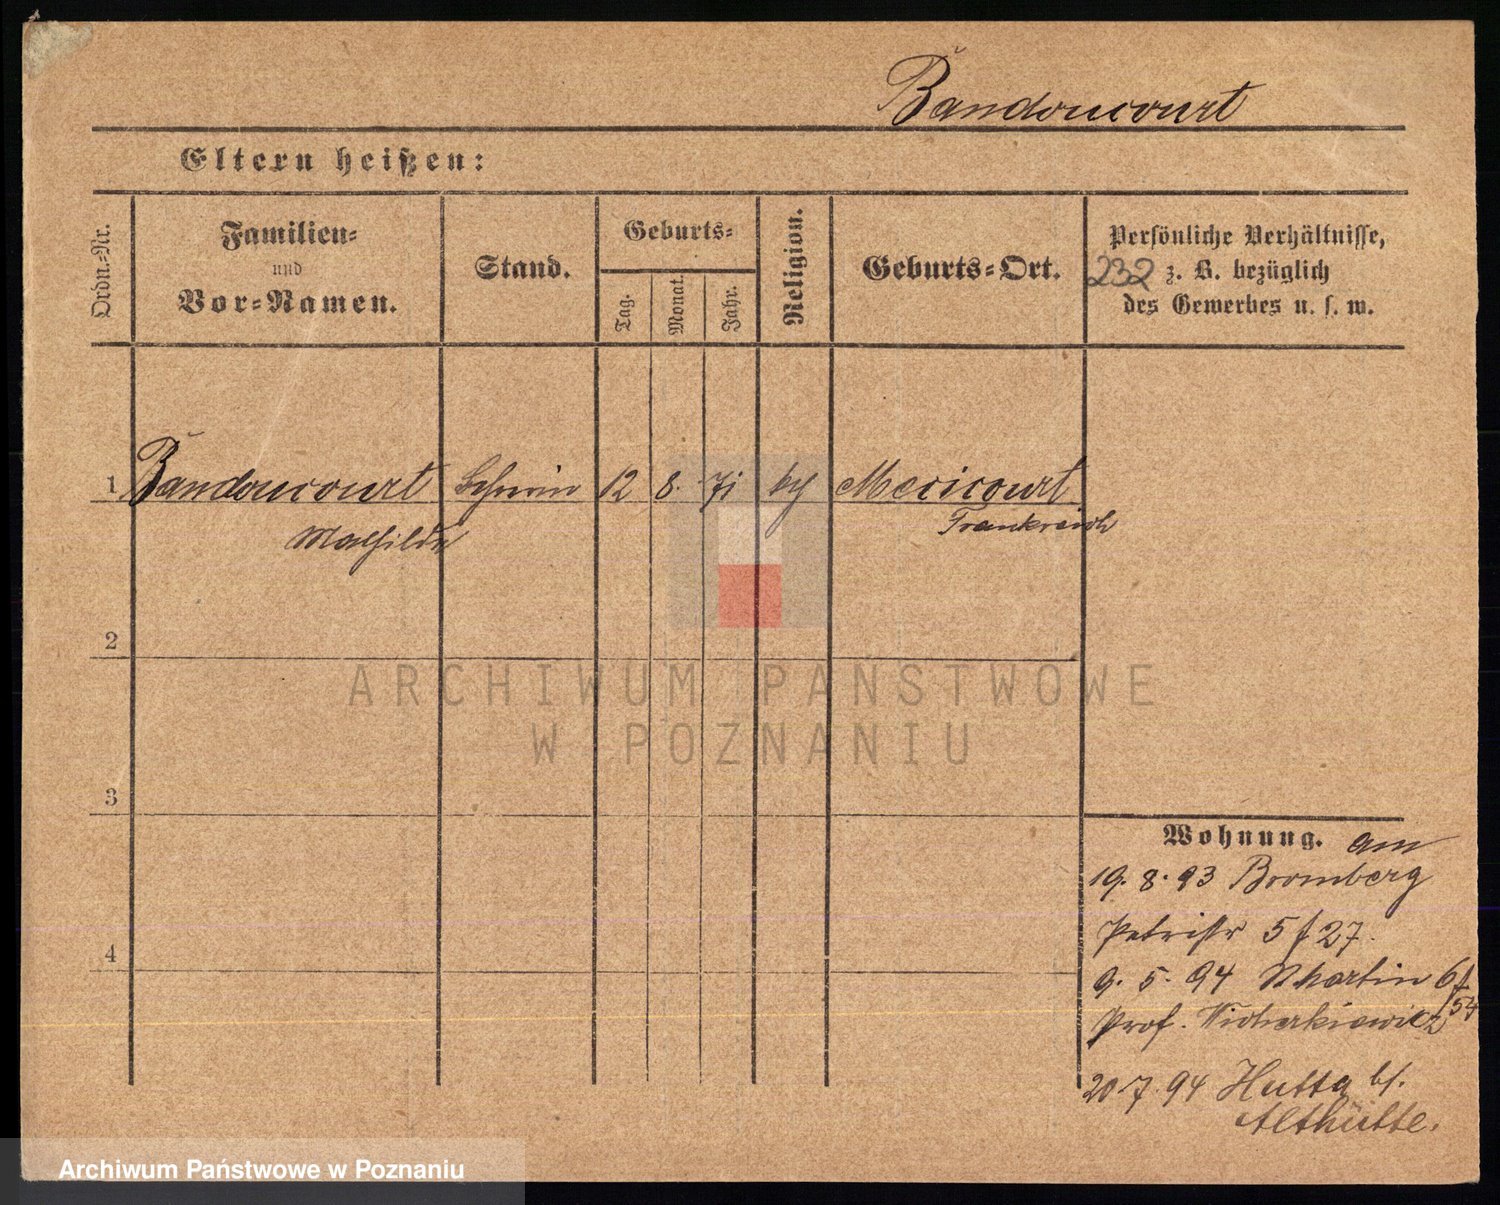 Bandoucourt
Eltern heißen:
Ordn.-Nr.
Familien-
und
Vor-Namen.
Stand.
Geburts-
Tag.
Monat.
Jahr.
Religion.
Geburts-Ort.
Persönliche Verhältnisse,
232 z. B. bezüglich
des Gewerbes u. s. w.
1 Bandoucourt 12 8. 71 Mericourt
Mathilde Frankreich
2
3
4
Wohnung. am
19. 8. 93 Bromberg
Petristr 5 / 27.
9. 5. 94 Martin 6/54
Prof. Wicherkiewicz
20.7.94 Hutta bf.
Althütte.
ARCHIWUM PAŃSTWOWE
W POZNANIU
Archiwum Państwowe w Poznaniu